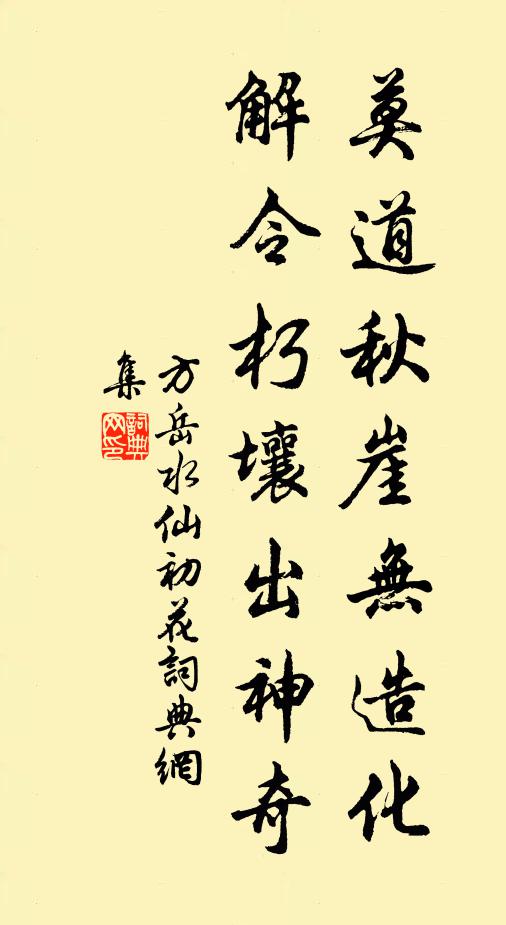 莫道秋崖無造化
解令朽壤出神奇
方岳水仙初花詞典網
集
詞典
网印